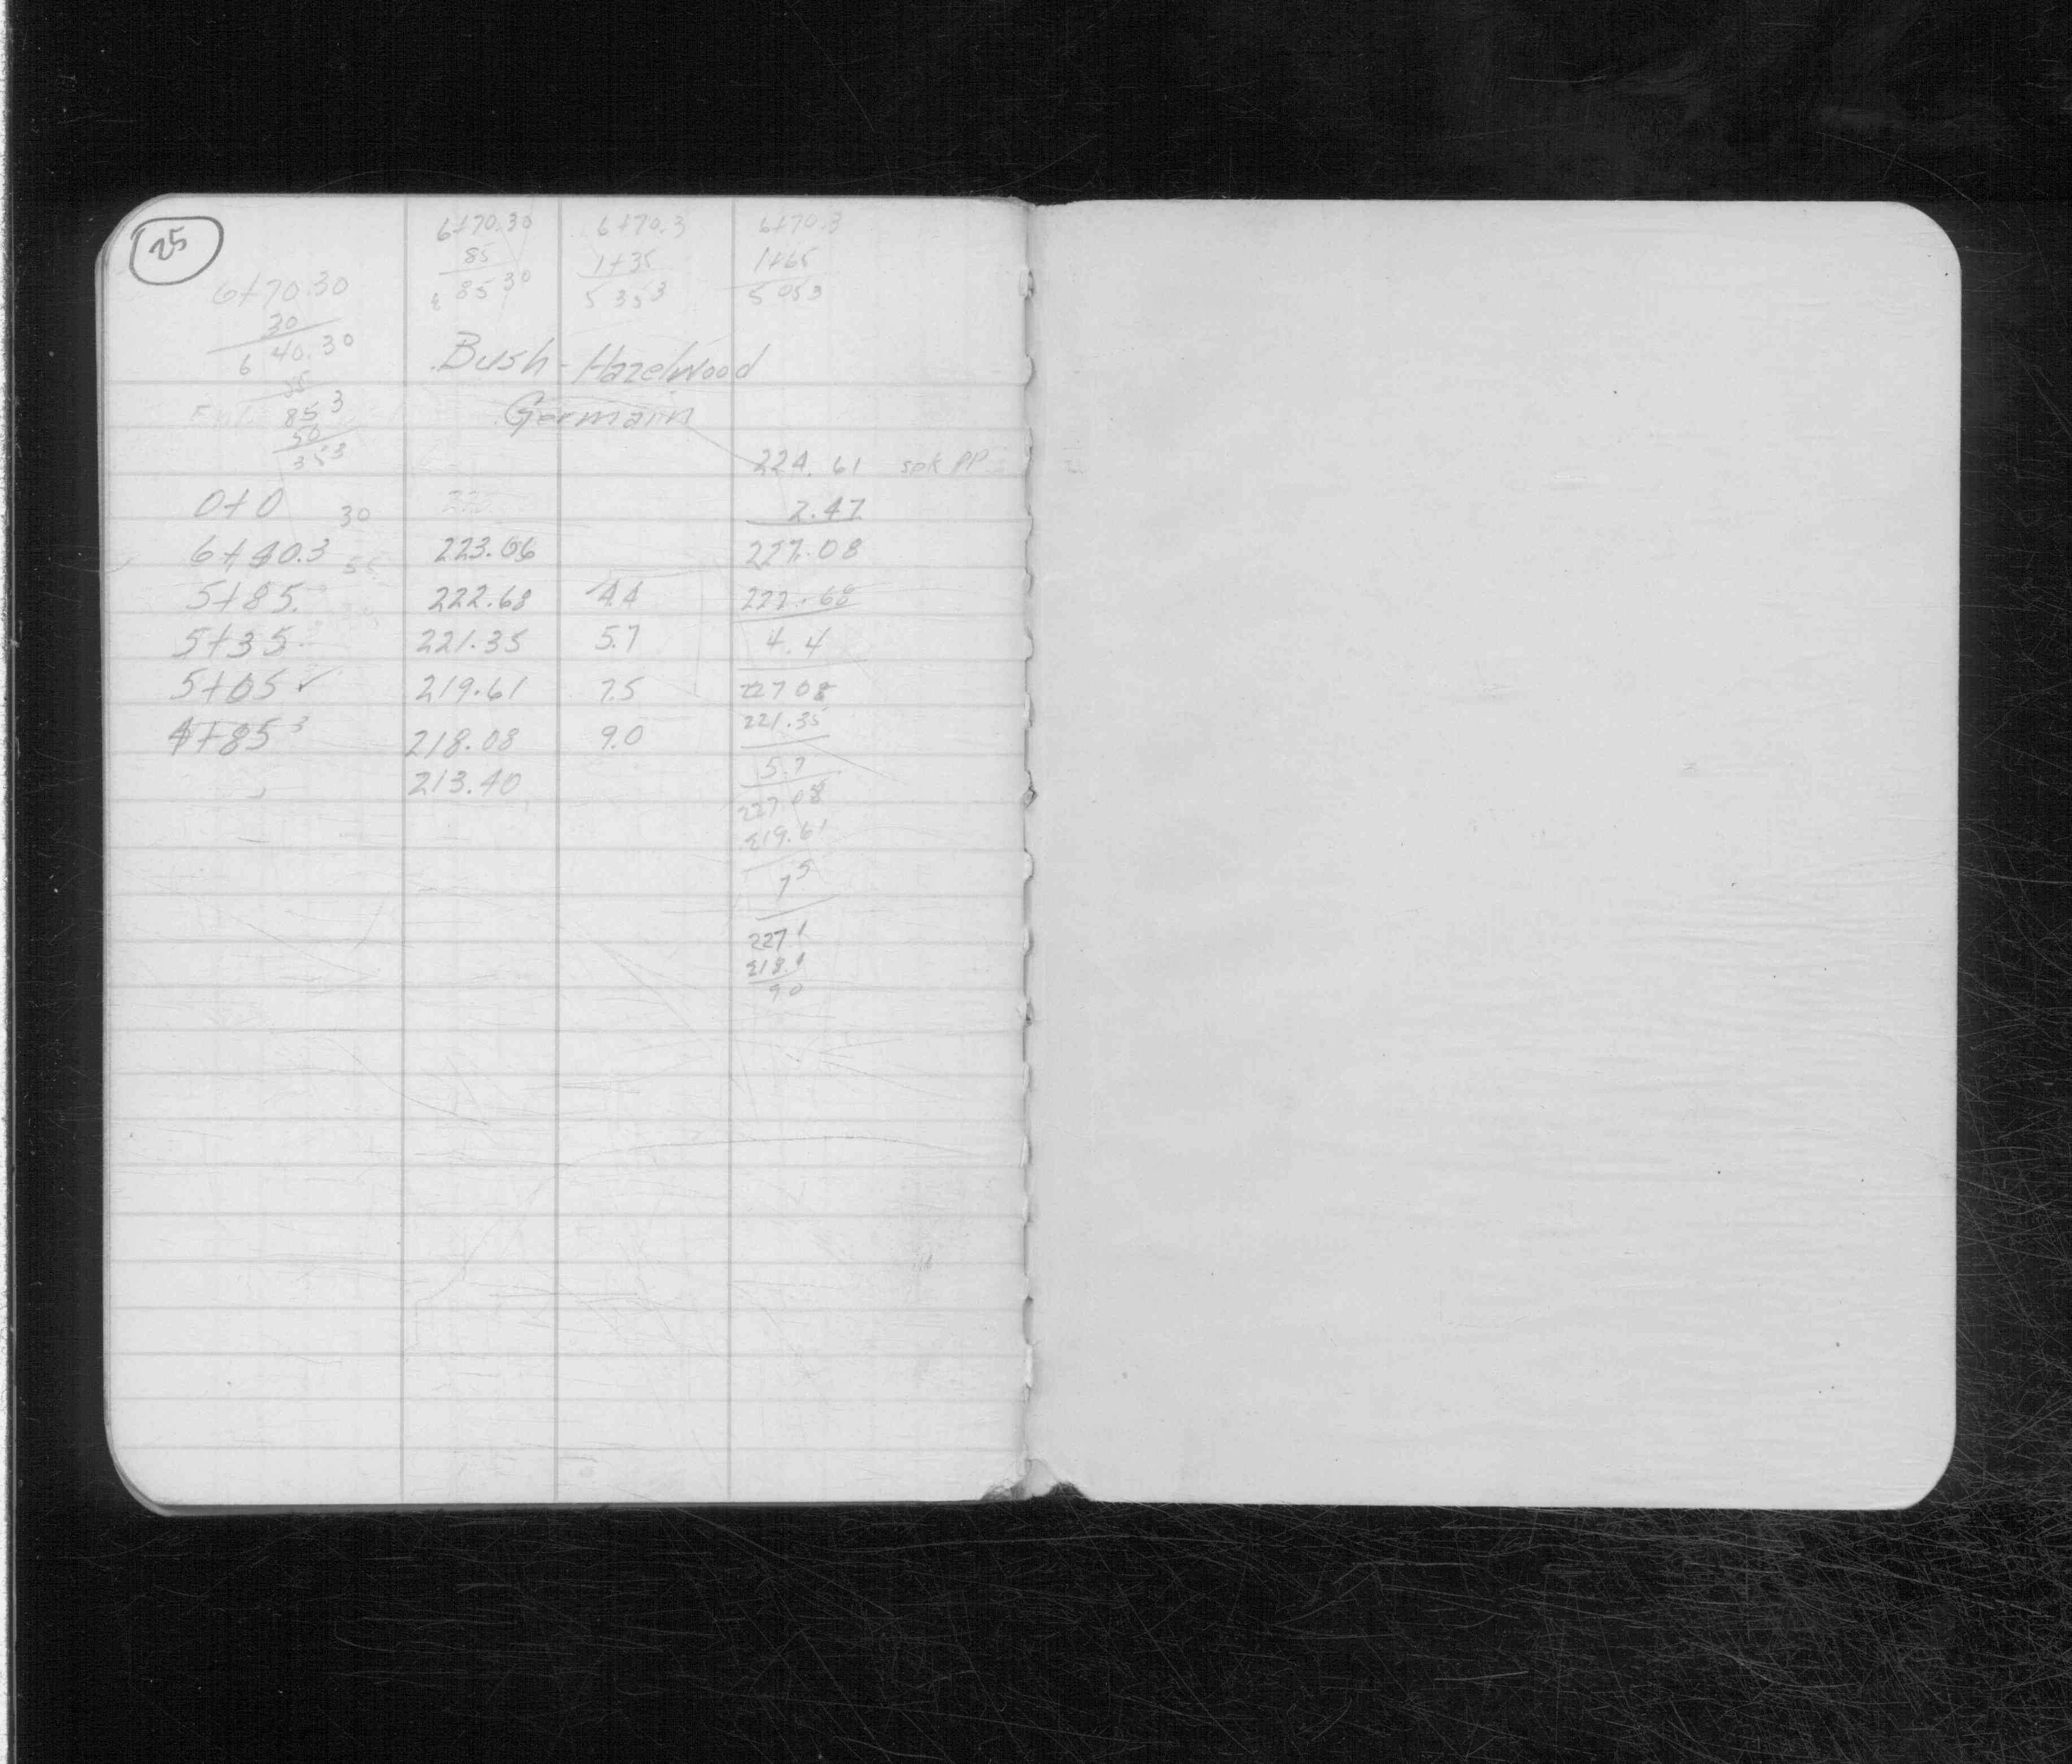 25
6+70.30 6+70.3 6+70.3
85 1+35 1+65
85 30 5 35 3 5 05 3
6+70.30
30
6 40.30
Bush - Hazelwood
85 3
Germann
50
35 3
224.61 spk PP
0+0 30 225 2.47
6+40.3 223.06 227.08
5+85. 222.68 4.4 222.68
5+35. 221.35 5.7 4.4
5+05 ✓ 219.61 7.5 227 08
221.35
4+85 3 218.08 9.0
5.7
213.40
227 08
219.61
7 5
227.1
218.1
9 0